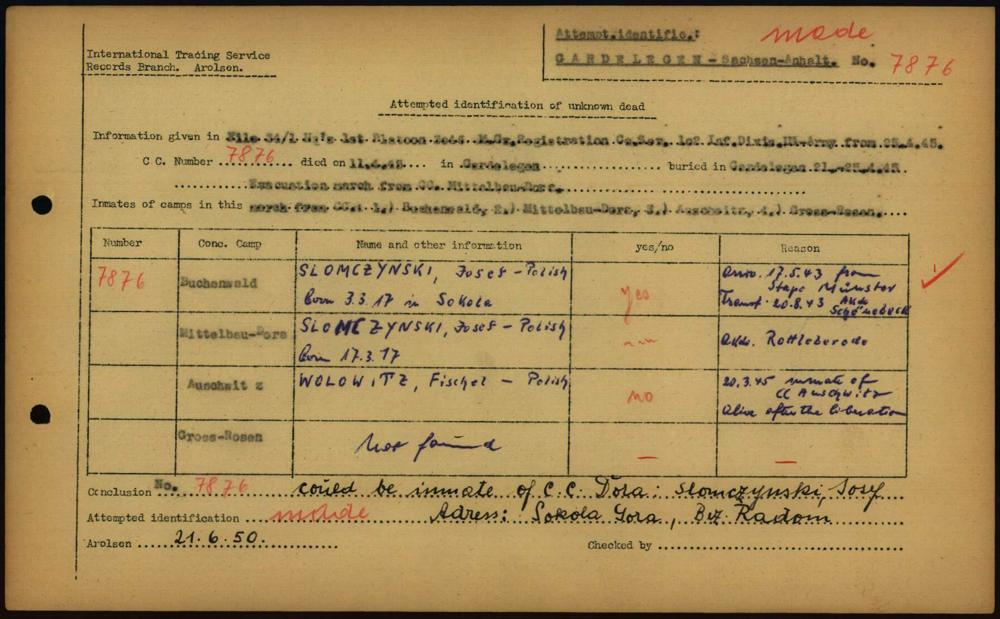 Attempt.identific.: made
International Tracing Service
GARDELEGEN - Sachsen-Anhalt. No. 7876
Records Branch. Arolsen.
Attempted identification of unknown dead
Information given in File 34/1 Hq's 1st Platoon 3044. M.Gr.Registration Co.Ser. 102 Inf.Div. Army from 25.4.45.
C C. Number 7876 died on 11.4.45 in Gardelegen buried in Gardelegen 21.-25.4.45
Evacuation march from CC. Mittelbau-Dora.
Inmates of camps in this march from CC.: 1.) Buchenwald, 2.) Mittelbau-Dora, 3.) Auschwitz, 4.) Gross-Rosen.
Number Conc. Camp Name and other information yes/no Reason
7876 Buchenwald SLOMCZYNSKI, Josef - Polish yes arriv. 17.5.43 from
born 3.3.17 in Sokola Stapo Münster
Transf. 20.8.43 Akdo
Schönebeck
Mittelbau-Dora SLOMCZYNSKI, Josef - Polish Akdo. Rottleberode
born 17.3.17
Auschwitz WOLOWITZ, Fischel - Polish no 20.3.45 inmate of
CC Auschwitz
Alive after the liberation
Gross-Rosen Not found — —
Conclusion No. 7876 could be inmate of C.C. Dora: Slomczynski, Josef
Attempted identification made Adress: Sokola Gora, Bez. Radom
Arolsen 21.6.50. Checked by